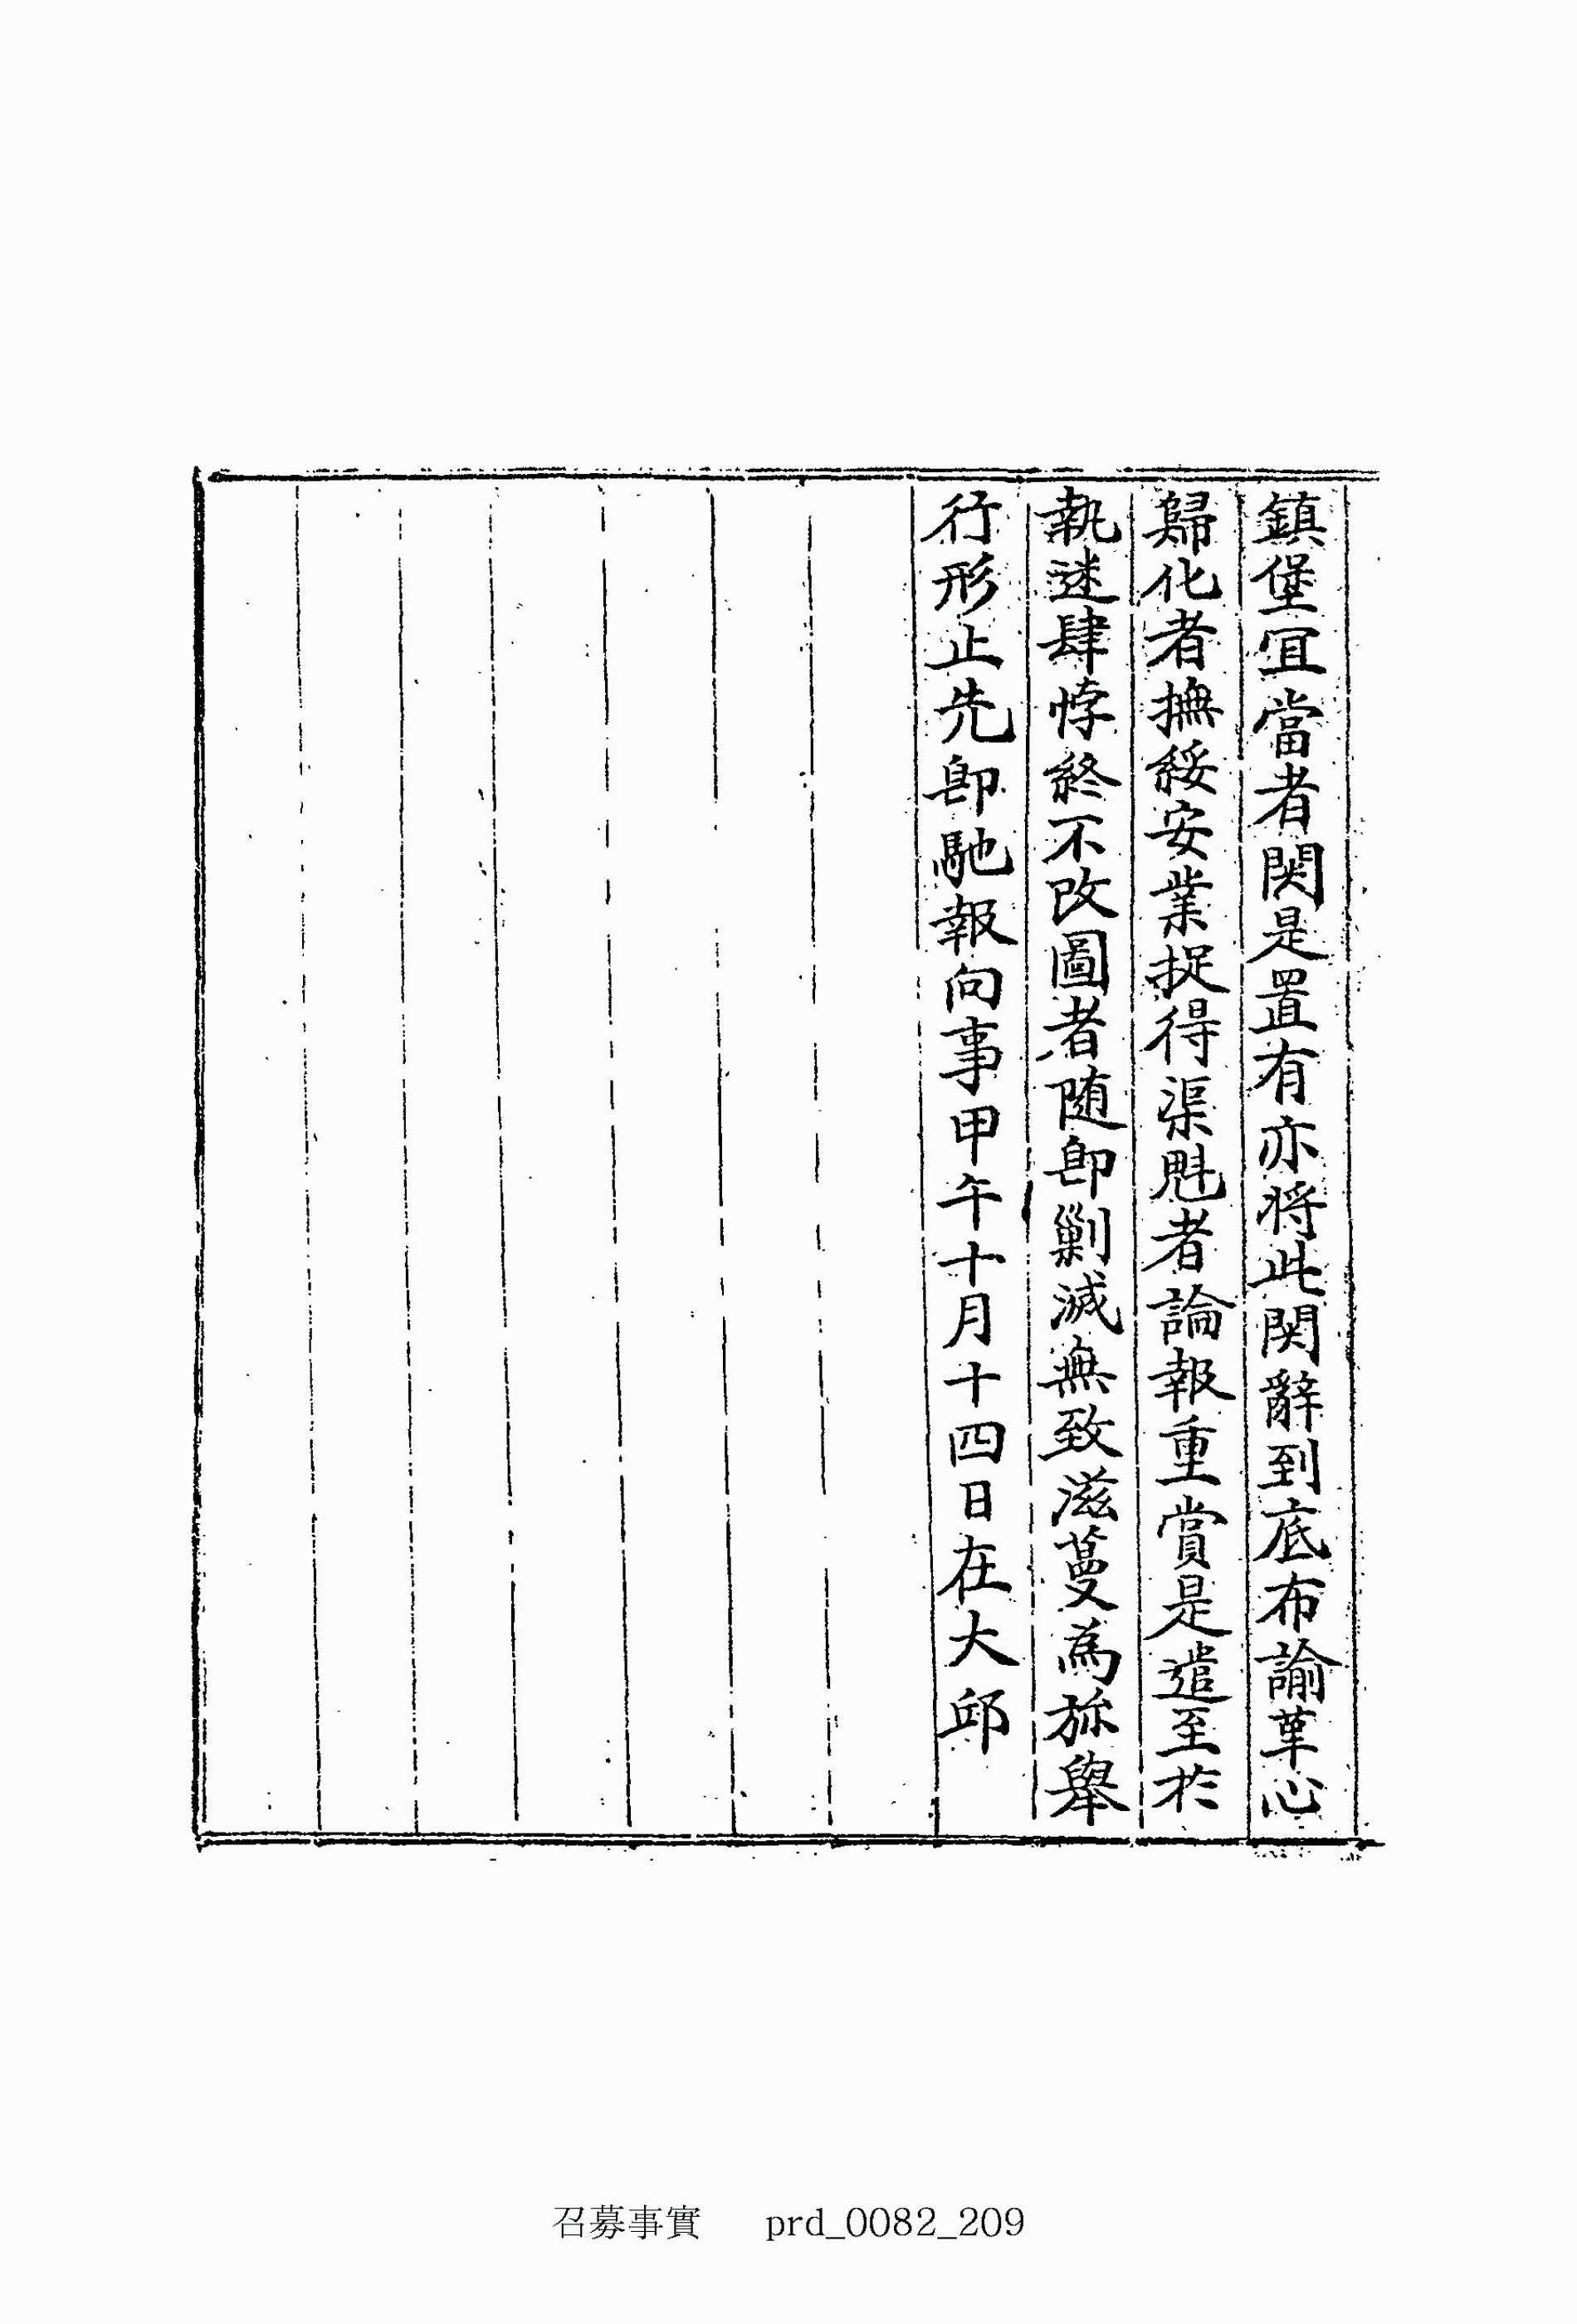 鎮堡宜當者関是置有亦將此関辭到底布諭革心
歸化者撫綏安業捉得渠魁者論報重賞是遣至於
執迷肆悖終不改圖者随即剿滅無致滋蔓為旀擧
行形止先即馳報向事甲午十月十四日在大邱
召募事實 prd_0082_209